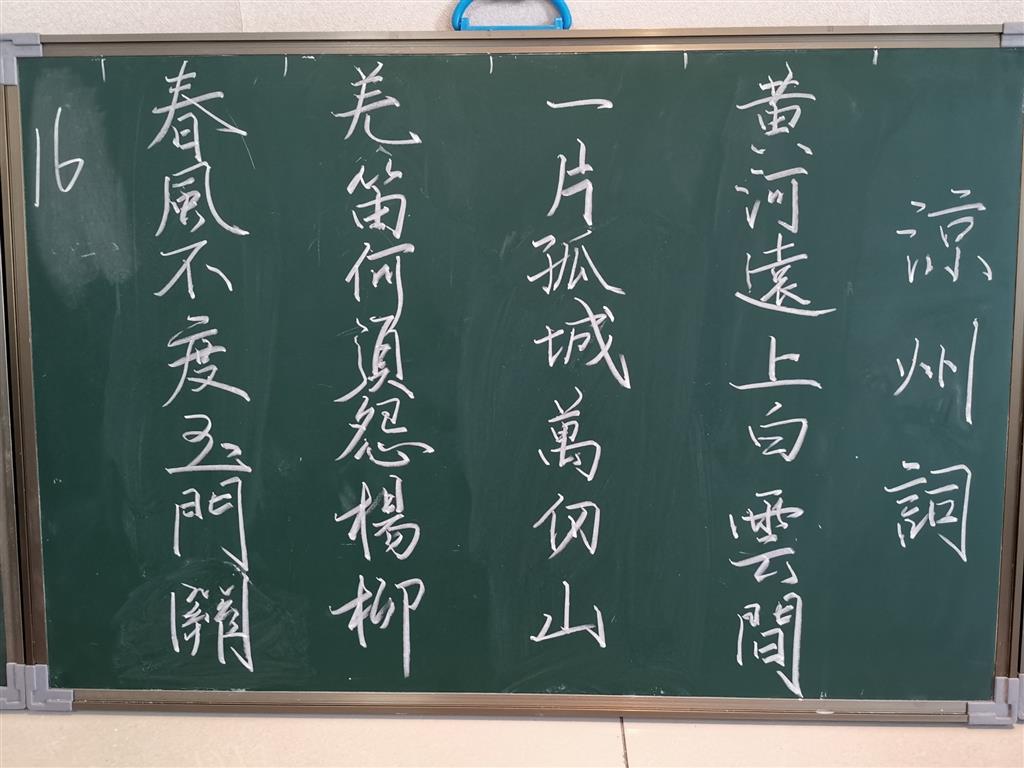 凉州詞
黄河遠上白雲間
一片孤城萬仞山
羌笛何須怨楊柳
春風不度玉門關
16